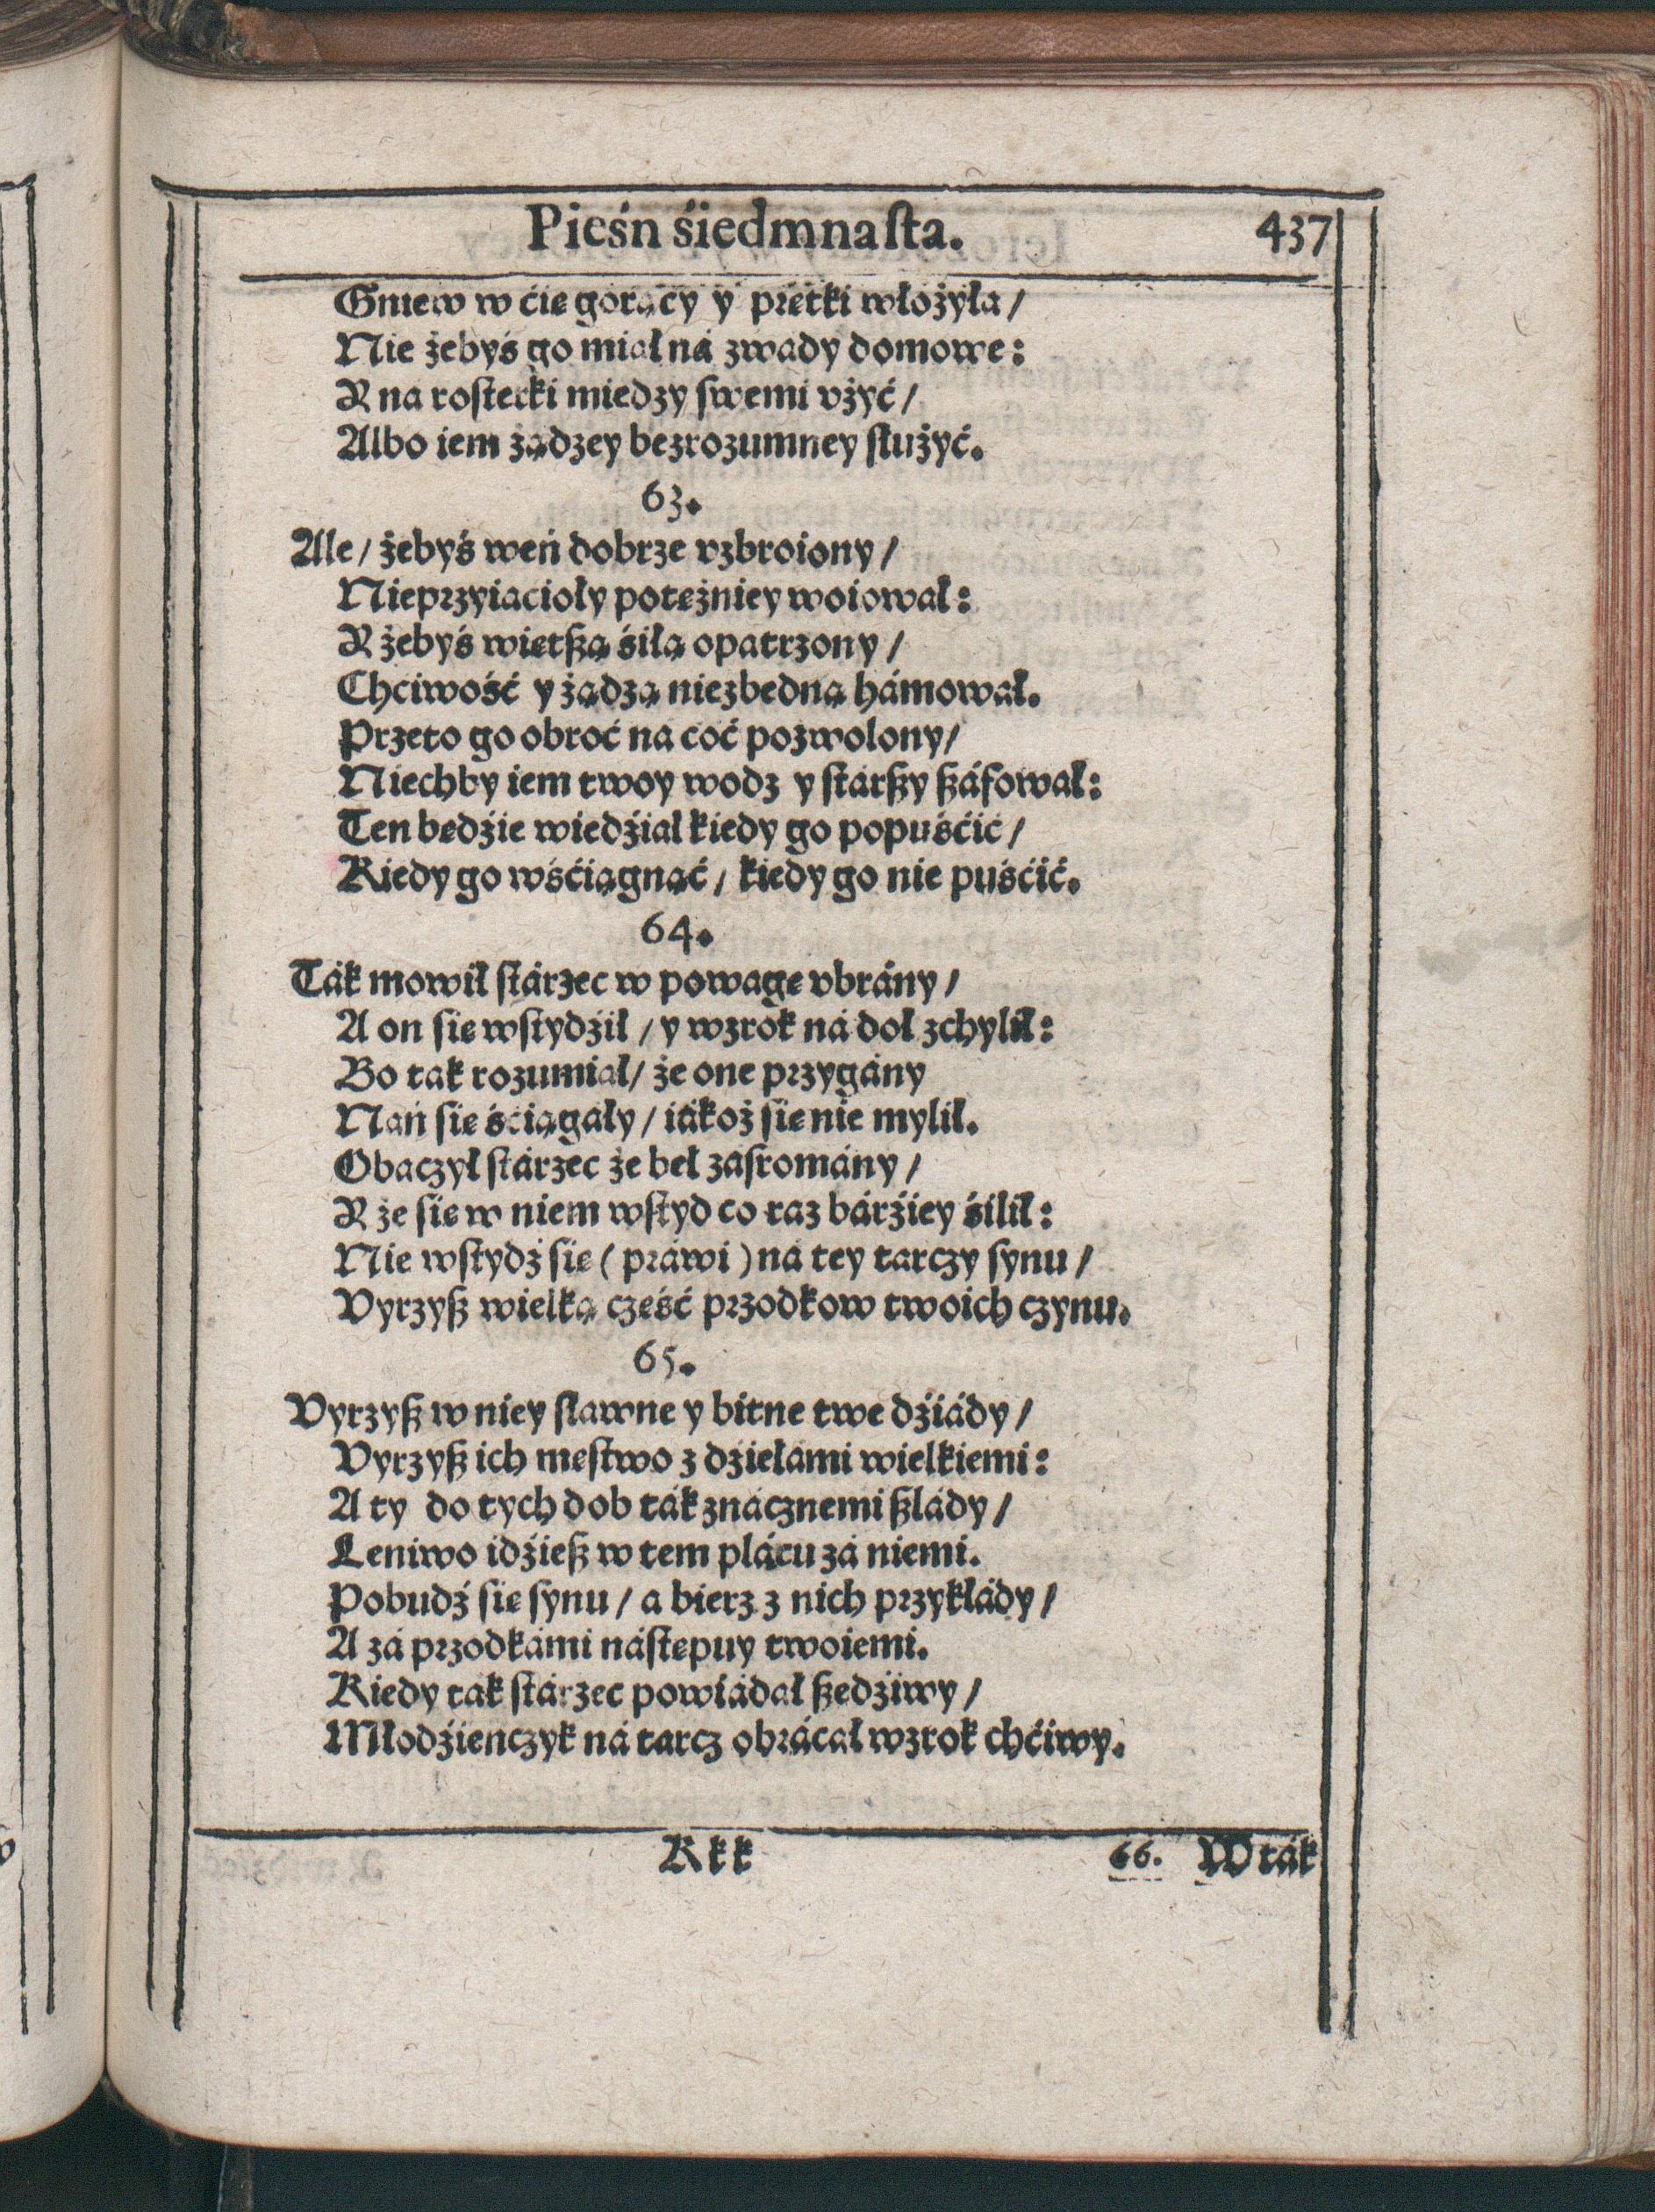 Pieśń śiedmnaſta.
437
Gniew w ćię gorący y prętki włożyła /
Nie żebyś go miał ná zwady domowe:
Y na roſterki miedzy ſwemi vżyć /
Albo iem żądzey bezrozumney ſłużyć.
63.
Ale / żebyś weń dobrze vzbroiony /
Nieprzyiacioły potężniey woiował:
Y żebyś więtßą śiłą opatrzony /
Chciwość y żądzą niezbedną hámował.
Przeto go obroć na coć pozwolony /
Niechby iem twoy wodz y stárßy ßáfował:
Ten będźie wiedźiał kiedy go popuśćić /
Kiedy go wśćiągnąć / kiedy go nie puśćić.
64.
Ták mowił stárzec w powagę vbrány /
A on ſię wſtydźił / y wzrok ná doł zchylił:
Bo tak rozumiał / że one przygány
Nań ſię śćiągáły / iákoż ſię nie mylił.
Obaczył stárzec że beł záſromány /
Y że ſię w niem wſtyd co raz bárźiey śilił:
Nie wſtydź ſię ( práwi ) ná tey tarczy ſynu /
Vyrzyß wielką cześć przodkow twoich czynu.
65.
Vyrzyß w niey ſławne y bitne twe dźiády /
Vyrzyß ich męſtwo z dźiełámi wielkiemi:
A ty do tych dob ták znácznemi ßlády /
Leniwo idźieß w tem plácu zá niemi.
Pobudź ſię ſynu / a bierz z nich przykłády /
A zá przodkámi náſtępuy twoiemi.
Kiedy tak stárzec powiádał ßedźiwy /
Młodźienczyk ná tarcz obrácał wzrok chćiwy.
Kkk
66. W ták